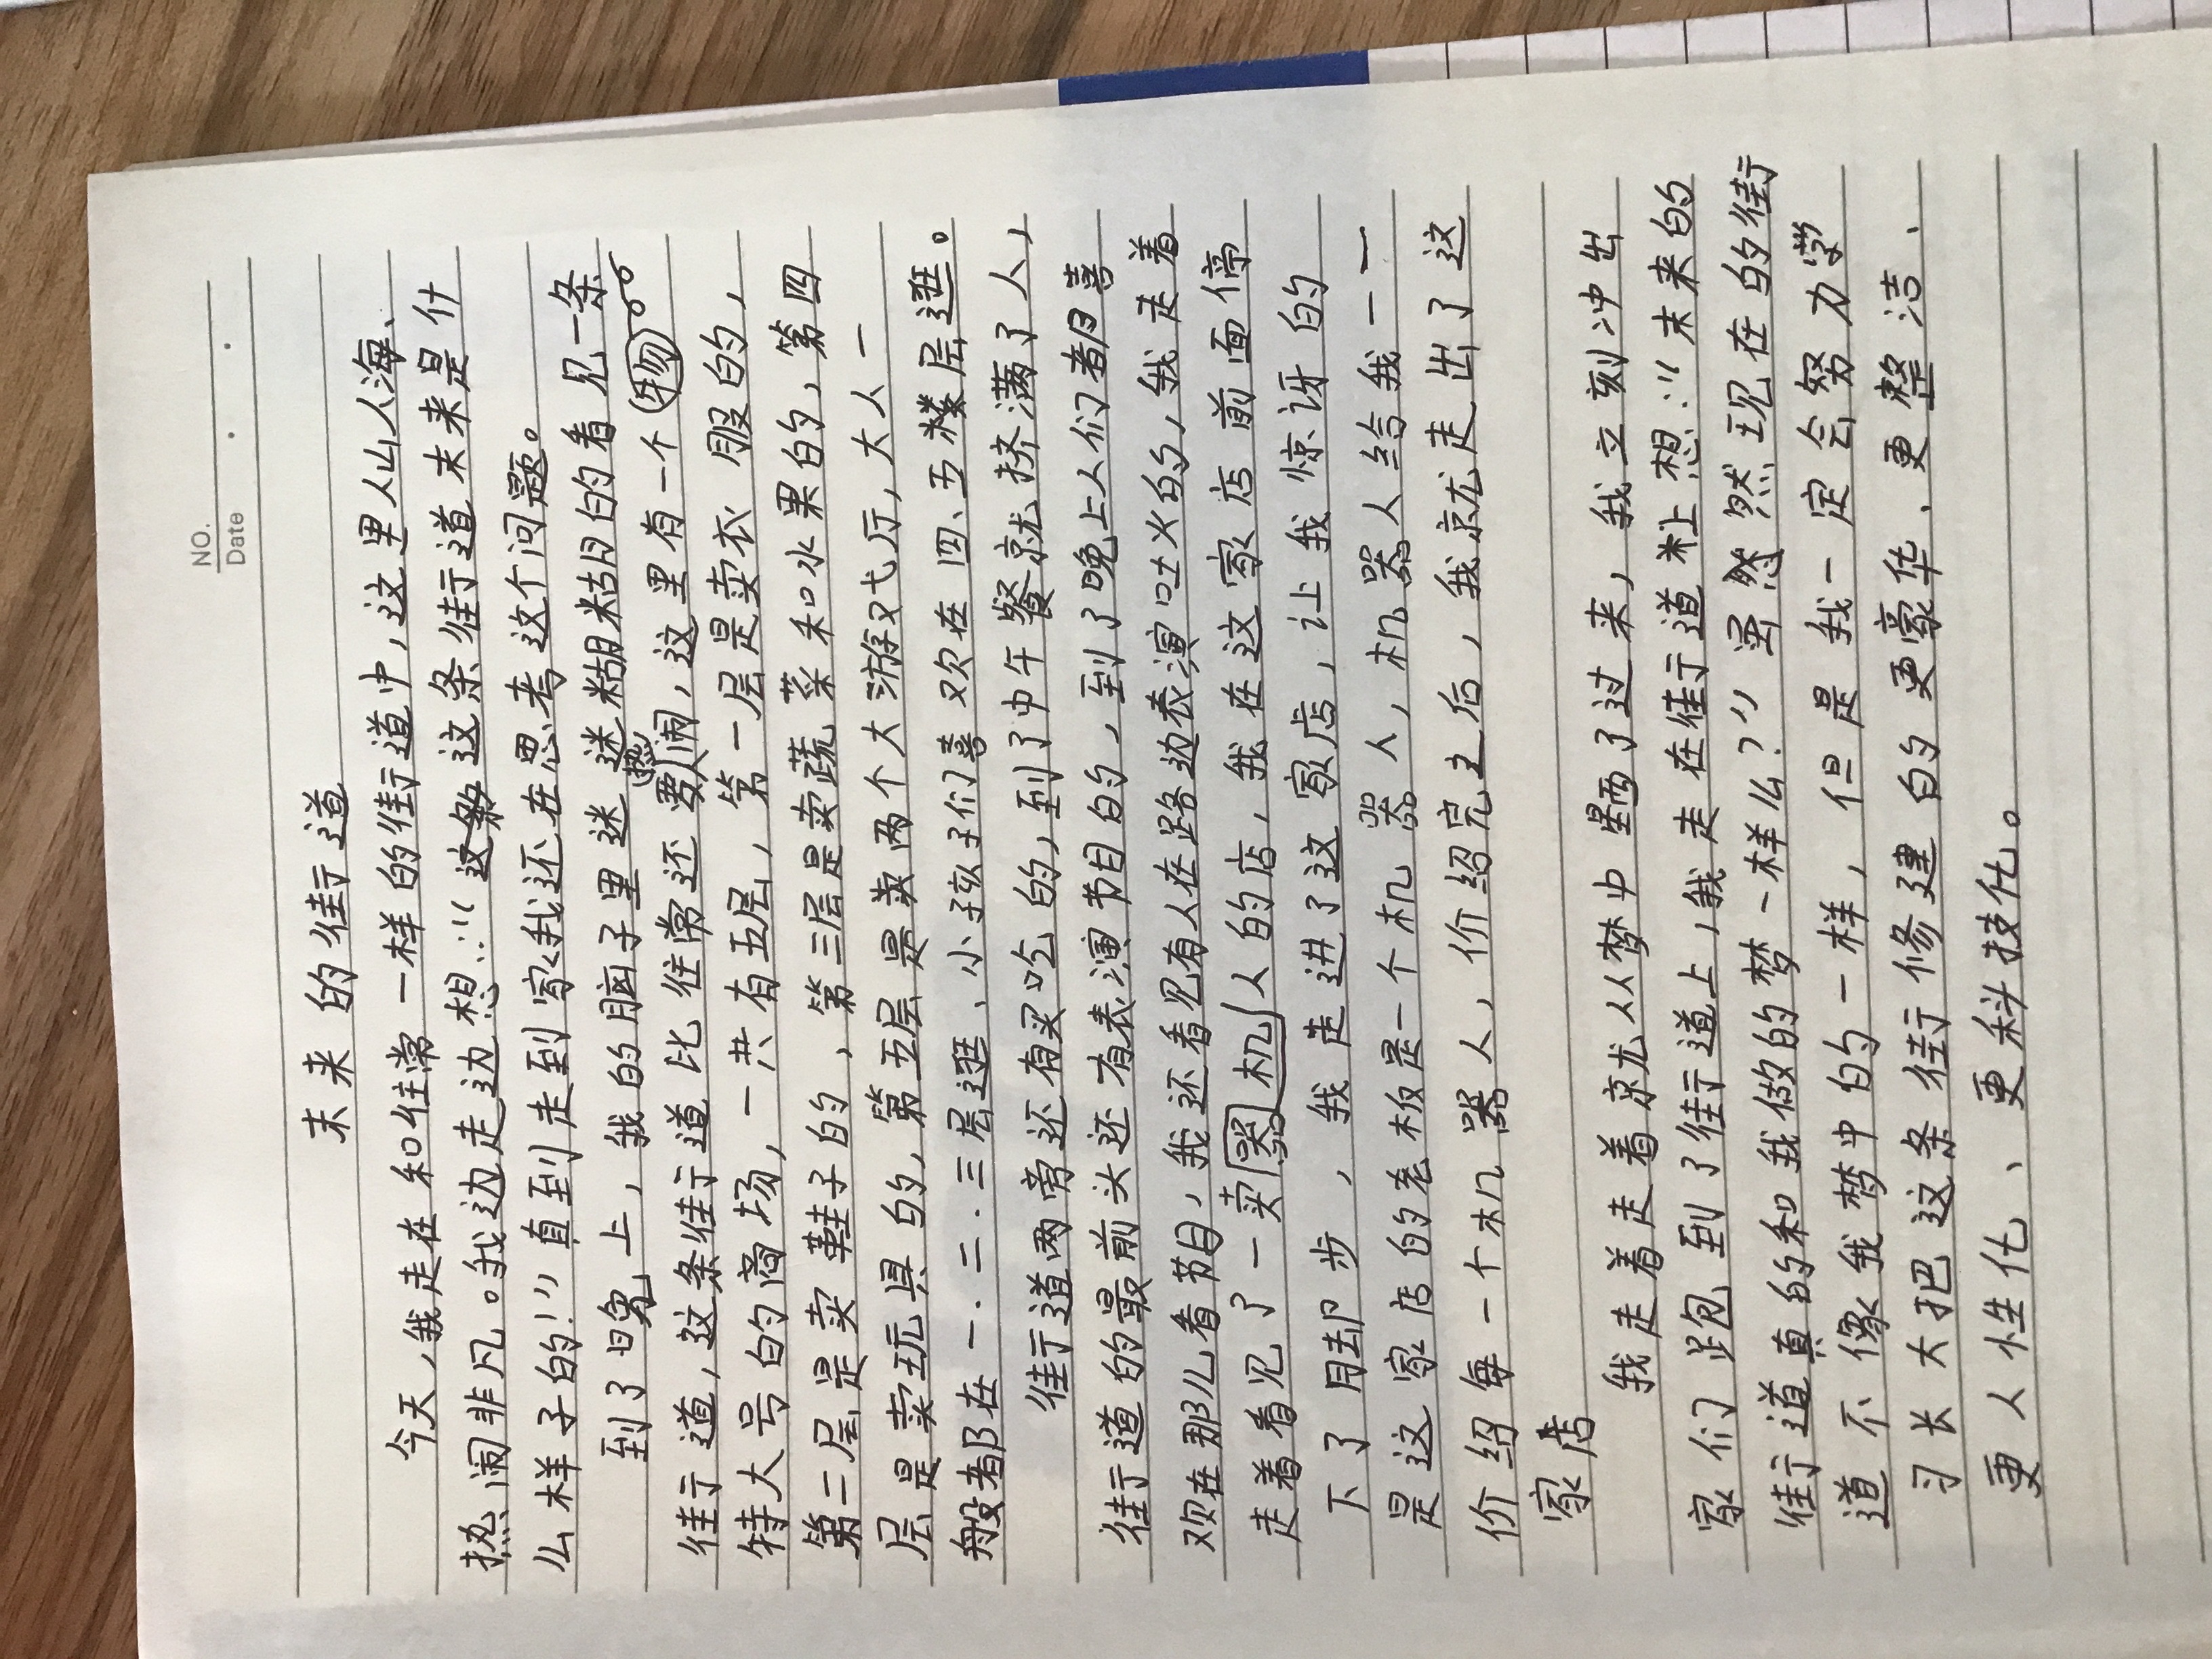 NO.
Date
未来的街道
今天,我走在和往常一样的街道中,这里人山人海、
热闹非凡。我边走边想:“这条街道未来是什
么样子的!”直到走到家我还在思考这个问题。
到了晚上,我的脑子里迷迷糊糊的看见一条
街道,这条街道比往常还要热闹,这里有一个
特大号的商场,一共有五层,第一层是卖衣服的,
第二层是卖鞋子的,第三层是卖蔬菜和水果的,第四
层是卖玩具的,第五层是两个大游戏厅,大人一
般都在一.二.三层逛、小孩子们喜欢在四、五楼层逛。
街道两旁还有买吃的,到了中午餐就挤满了人,
街道的最前头还有表演节目的,到了晚上人们都喜
欢在那儿看节目,我还看见有人在路边表演吐火的,我走着
走着看见了一卖器机人的店,我在这家店前面停
下了脚步,我走进了这家店,让我惊讶的
是这家店的老板是一个机器人,机器人给我一一
价绍每一个机器人,价绍完之后,我就走出了这
家店
我走着走着就从梦中醒了过来,我立刻冲出
家们跑到了街道上,我走在街道上想:“未来的
街道真的和我做的梦一样么?”虽然现在的街
道不像我梦中的一样,但是我一定会努力学
习长大把这条街修建的更豪华、更整洁、
更人性化、更科技化。